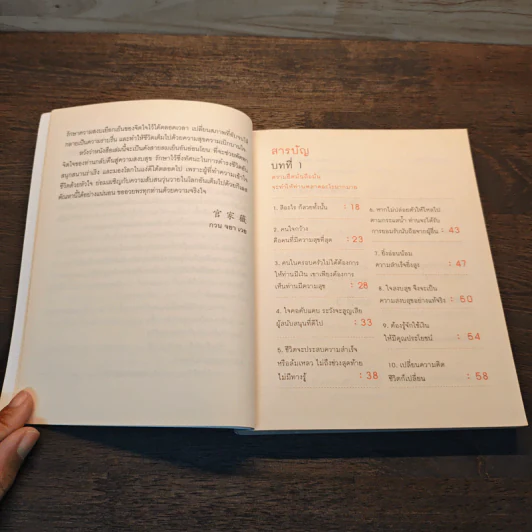 รักษาความสงบเยือกเย็นของจิตใจไว้ได้ตลอดเวลา เปลี่ยนสภาพที่คับขันให้
กลายเป็นความราบรื่น และทำให้ชีวิตเต็มไปด้วยความสุขความเบิกบานใจ
หวังว่าหนังสือเล่มนี้จะเป็นดังสายลมเย็นอันอ่อนโยน ที่จะช่วยพัดพา
จิตใจของท่านกลับคืนสู่ความสงบสุข รักษาไว้ซึ่งทัศนะในการดำรงชีวิตอัน
สนุกสนานร่าเริง และมองโลกในแง่ดีได้ตลอดไป เพราะผู้ที่ทำความเข้าใจ
宮家薇
กวน จยา เวย
สารบัญ
บทที่ 1
จะทำให้ท่านพลาดอะไรไปมากมาย
1. สิ่งอะไร ก็สวยทั้งนั้น : 18
2. คนใจกว้าง
คือคนที่มีความสุขที่สุด : 23
3. คนในครอบครัวไม่ได้ต้องการ
ให้ท่านมีเงิน เขาเพียงต้องการ
เห็นท่านมีความสุข : 28
4. ใจคอคับแคบ ระวังจะสูญเสีย
ผู้สนับสนุนที่ดีไป : 33
5. ชีวิตจะประสบความสำเร็จ
หรือล้มเหลว ไม่ถึงช่วงสุดท้าย
ไม่มีทางรู้ : 38
6. หากไม่ปล่อยตัวให้ไหลไป
ตามกระแสน้ำ ท่านจะได้รับ
การยอมรับนับถือจากผู้อื่น : 43
7. ยิ่งอ่อนน้อม
ความสำเร็จยิ่งสูง : 47
8. ใจสงบสุข จึงจะเป็น
ความสงบสุขอย่างแท้จริง : 50
9. ต้องรู้จักใช้เงิน
ให้มีคุณประโยชน์ : 54
10. เปลี่ยนความคิด
ชีวิตก็เปลี่ยน : 58